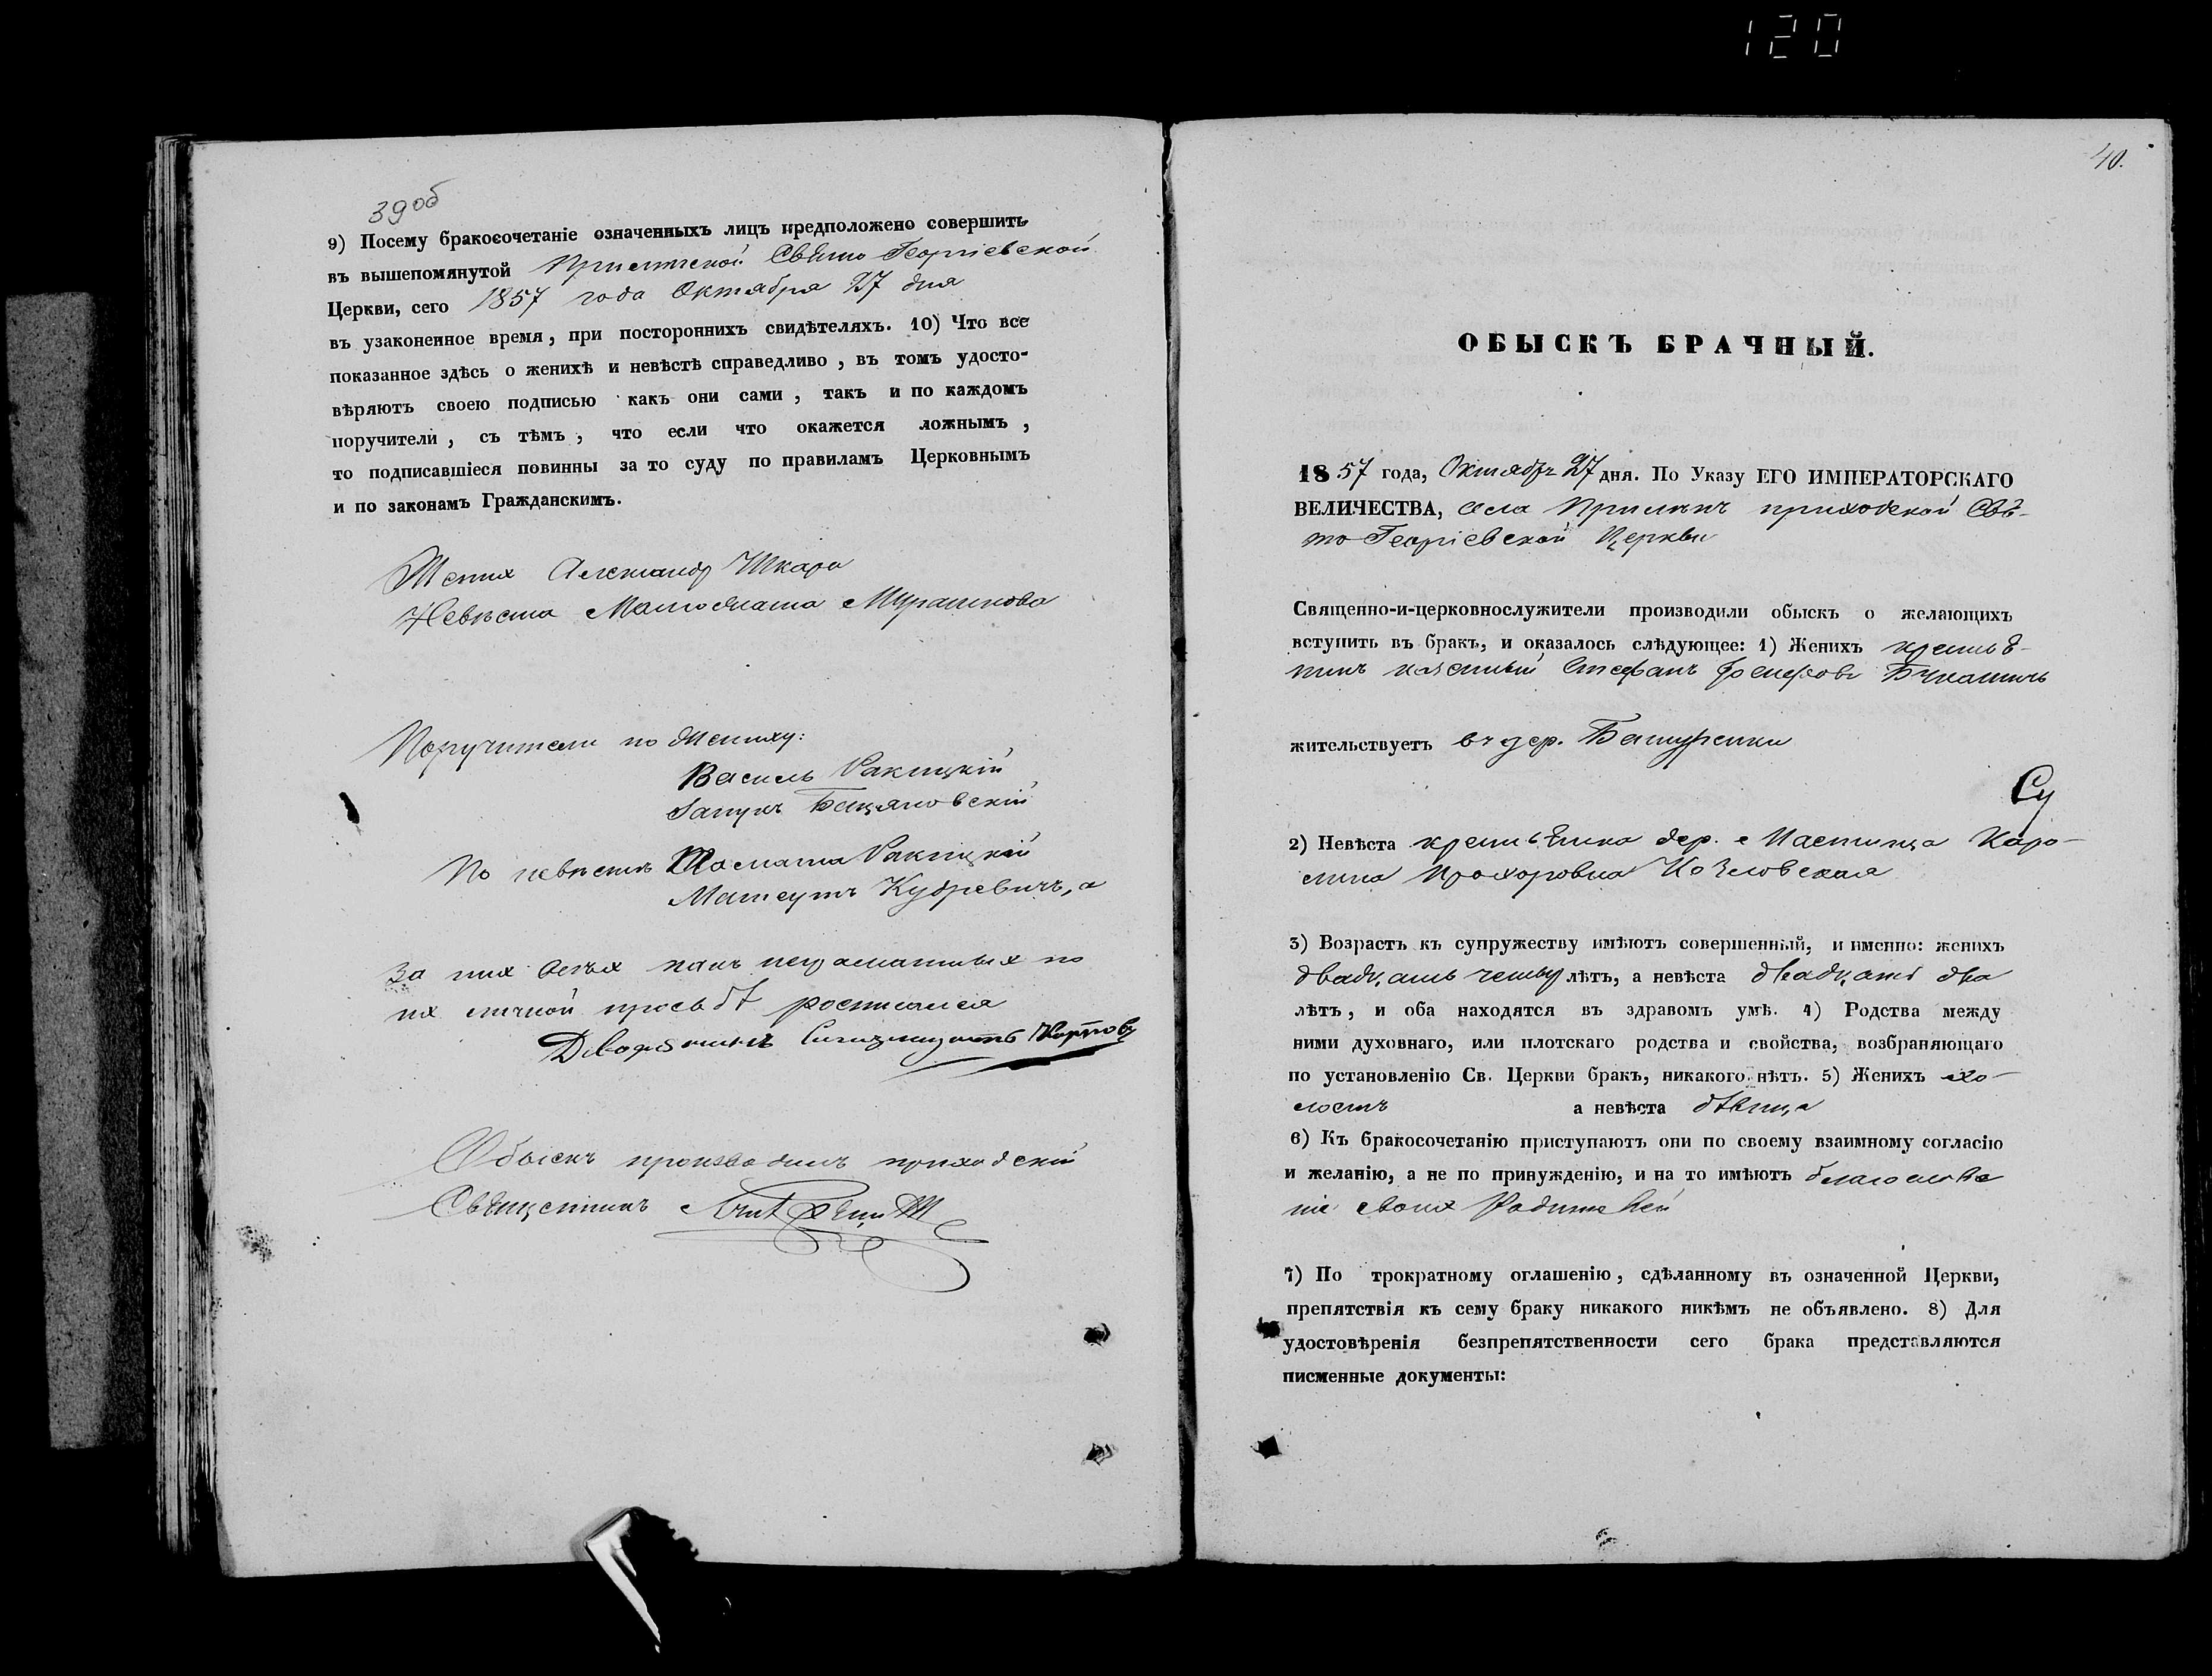 120
39об
9) Посему бракосочетаніе означенныхъ лицъ предположено совершить
въ вышепомянутой Свято Георгіевской
Церкви, сего 1857 года Октября 27 дня
въ узаконенное время, при постороннихъ свидѣтеляхъ. 10) Что все
показанное здѣсь о женихѣ и невѣстѣ справедливо, въ томъ удосто-
вѣряютъ своею подписью какъ они сами, такъ и по каждомъ
поручители, съ тѣмъ, что если что окажется ложнымъ,
то подписавшіеся повинны за то суду по правиламъ Церковнымъ
и по законамъ Гражданскимъ.
Жених Александр Шкара
Невѣста
Поручители по жениху:
Василь Ракицкій
По невѣстѣ Ракицкій
Кудревичъ, а
За них всѣх как неграматных по
их личной прозьбѣ росписался
Дворянинъ
Обыскъ производилъ приходскій
Священник
40.
ОБЫСКЪ БРАЧНЫЙ.
1857 года, Октябр 27 дня. По Указу ЕГО ИМПЕРАТОРСКАГО
ВЕЛИЧЕСТВА, села приходской Свя-
то Георгіевской Церкви
Священно-и-церковнослужители производили обыскъ о желающихъ
вступить въ бракъ, и оказалось слѣдующее: 1) Женихъ крестья-
нинъ Стефанъ
жительствуетъ въ дер.
Су
2) Невѣста крестьянка дер. Каро-
лина Прохоровна Козловская
3) Возрастъ къ супружеству имѣютъ совершенный, и именно: женихъ
двадцать четыр лѣтъ, а невѣста двадцать два
лѣтъ, и оба находятся въ здравомъ умѣ. 4) Родства между
ними духовнаго, или плотскаго родства и свойства, возбраняющаго
по установленію Св. Церкви бракъ, никакого нѣтъ. 5) Женихъ хо-
лостъ а невѣста дѣвица
6) Къ бракосочетанію приступаютъ они по своему взаимному согласію
и желанію, а не по принужденію, и на то имѣютъ благослове
ніе своих Родителей
7) По трократному оглашенію, сдѣланному въ означенной Церкви,
препятствія къ сему браку никакого никѣмъ не объявлено. 8) Для
удостовѣренія безпрепятственности сего брака представляются
писменные документы: